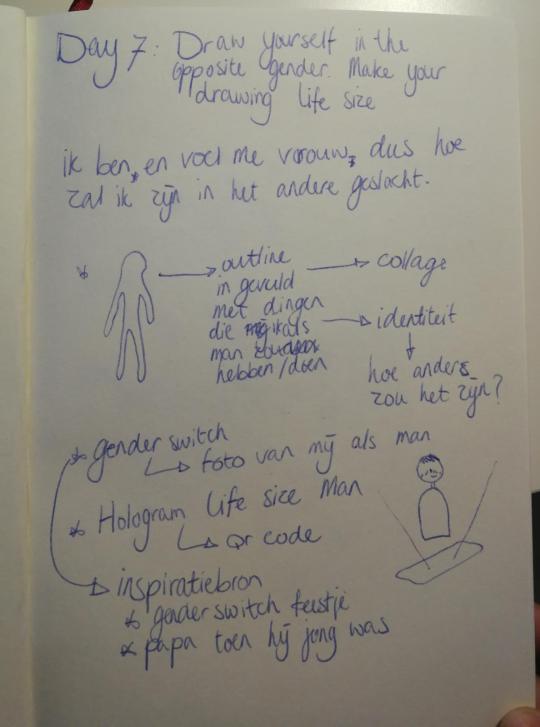 Day 7: Draw yourself in the
opposite gender. Make your
drawing life size
ik ben, en voel me vrouw, dus hoe
zal ik zijn in het andere geslacht.
* outline → collage
in gevuld
met dingen
die ik als → identiteit
man
hebben/doen
hoe anders
zou het zijn?
* gender switch
↳ foto van mij als man
* Hologram life size Man
↳ Qr code
inspiratiebron
* genderswitch feestje
* papa toen hij jong was